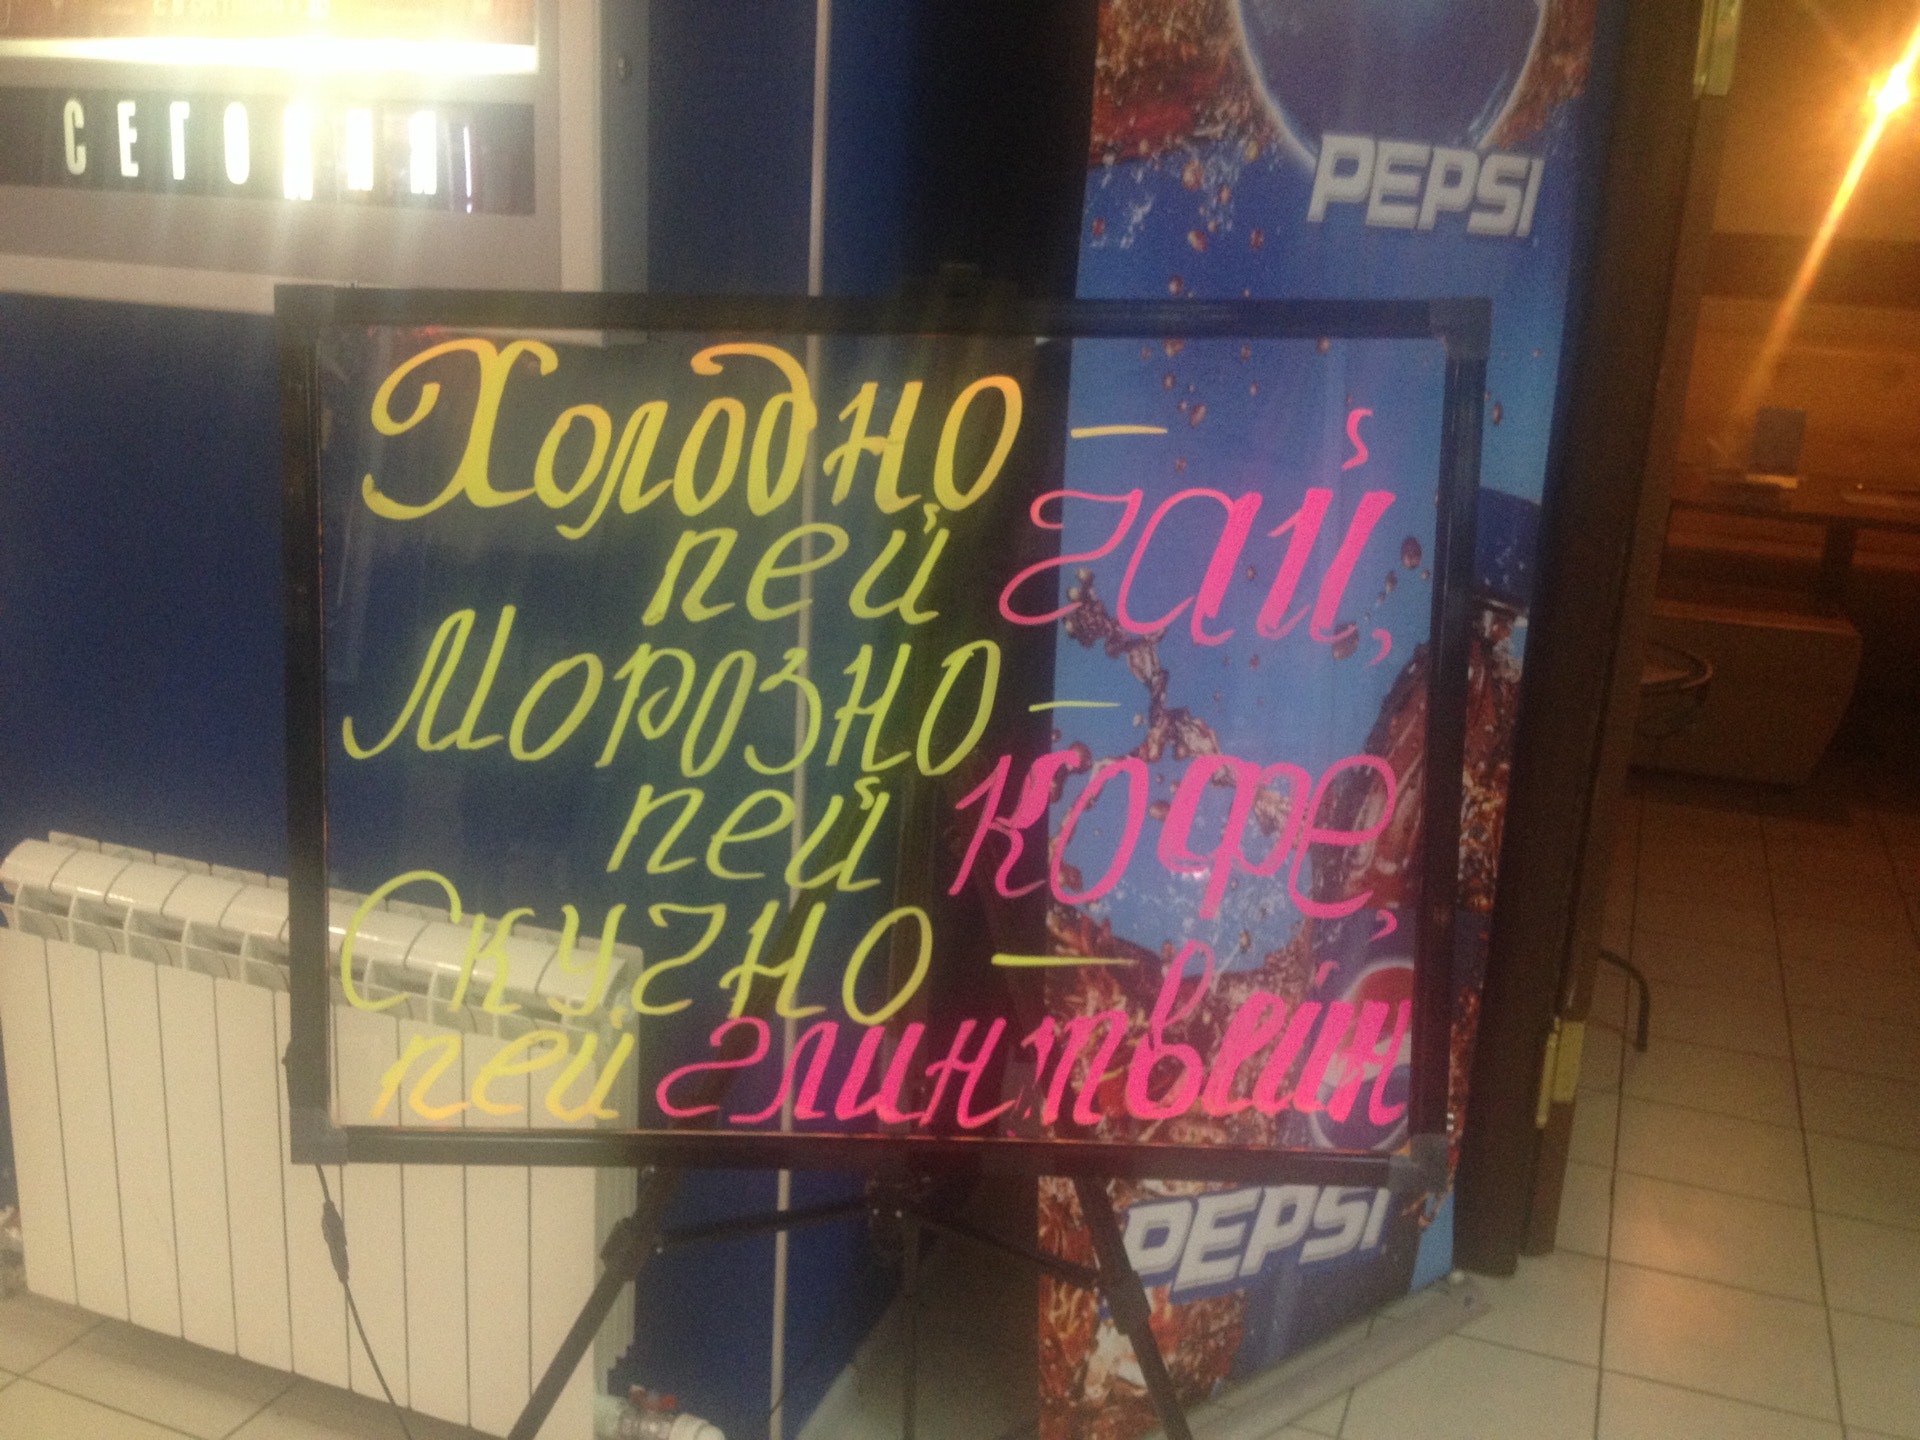 СЕГОДНЯ
PEPSI
Холодно –
пей чай,
Морозно –
пей кофе,
Скучно –
пей глинтвейн
PEPSI